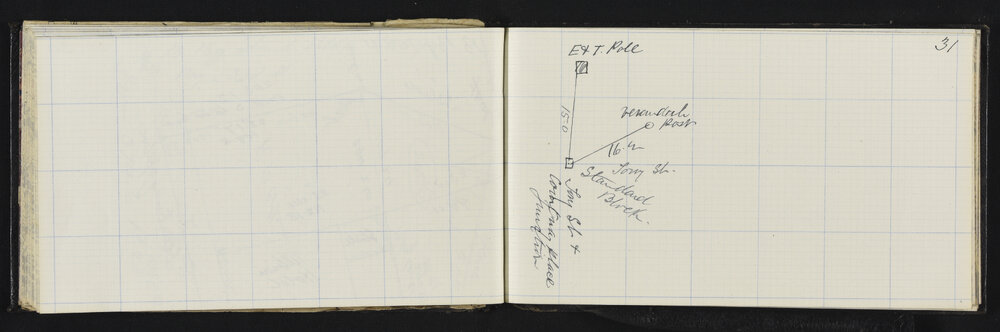 31
E & T. Pole
15.0
verandah
Post
16.
Tory St.
Standard
Block.
Tory St &
place
Junction